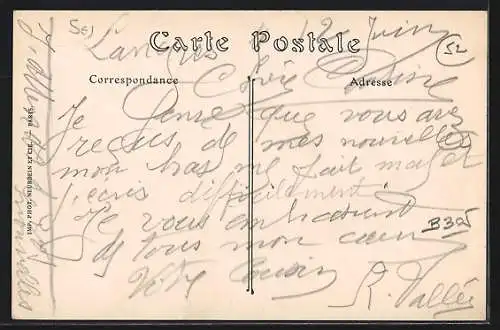 Langres 12 Juin
Carte Postale
Correspondance
Adresse
Chère
Je pense que vous avez
reçus de mes nouvelles
mon bras me fait mal et
j'écris difficilement
Je vous embrassant
de tous mon cœur
Votre Cousin
R. Vallée
J'attends nouvelles
IMP. PHOT. NEURDEIN ET CIE. — PARIS
52
B30